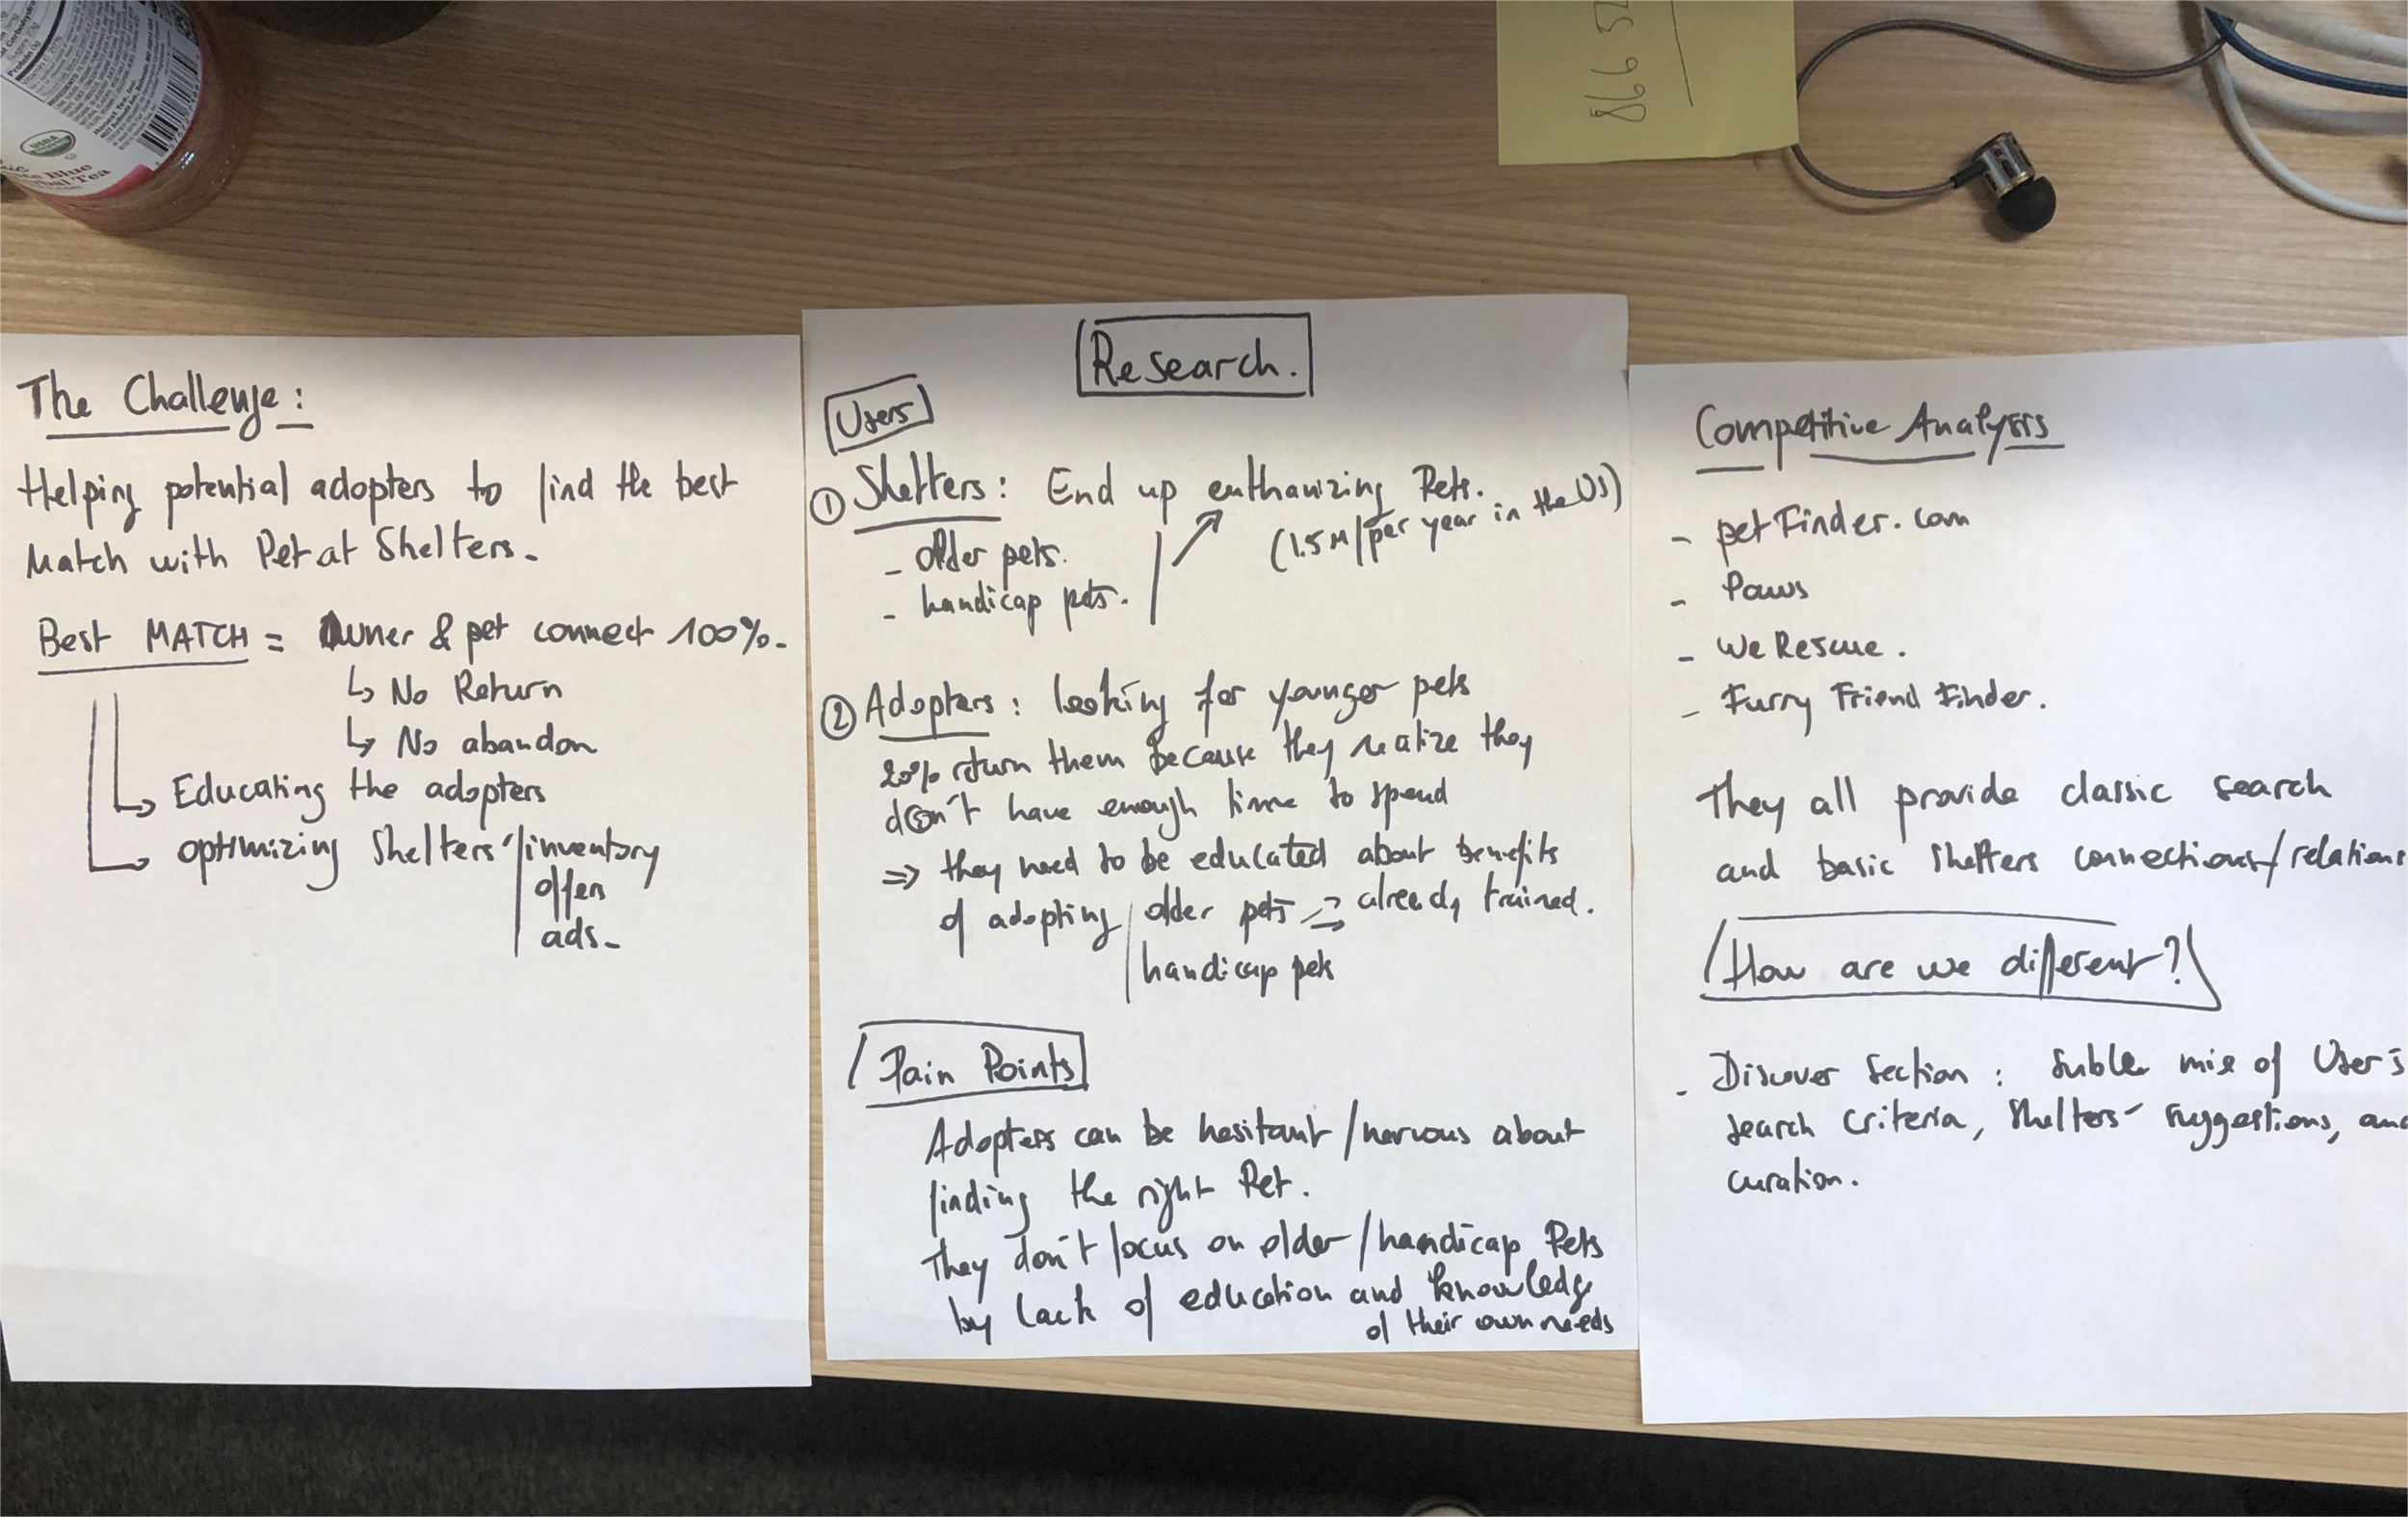 The Challenge:
Helping potential adopters to find the best
Match with Pet at Shelters.
Best MATCH = Owner & pet connect 100%.
↳ No Return
↳ No abandon
Educating the adopters
optimizing Shelters'/inventory
offers
ads.
Research.
Users
① Shelters: End up euthanizing Pets.
(1.5M/per year in the US)
- older pets.
- handicap pets.
② Adopters: looking for younger pets
20% return them because they realize they
don't have enough time to spend
=> they need to be educated about benefits
of adopting / older pets => already trained.
handicap pets
Pain Points
Adopters can be hesitant/nervous about
finding the right Pet.
They don't focus on older/handicap Pets
by lack of education and knowledge
of their own needs
Competitive Analysis
- petFinder.com
- Paws
- We Rescue.
- Furry Friend Finder.
They all provide classic search
and basic shelters connections/relations
How are we different?
- Discover section: suble mix of User's
search criteria, shelters' suggestions, and
curation.
866 5
USDA
Blue
bal Tea
Honest Tea, Inc.